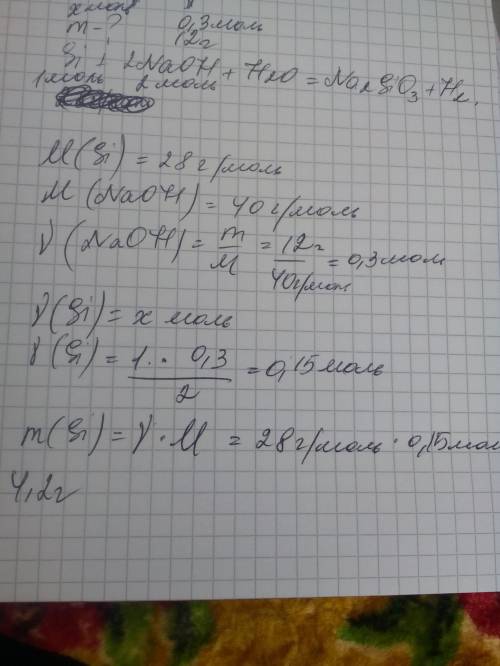 x моль
m - ? 0,3 моль
12 г
Si + 2NaOH + H2O = Na2SiO3 + H2
1 моль 2 моль
M(Si) = 28 г/моль
M (NaOH) = 40 г/моль
γ (NaOH) = m/M = 12 г/40 г/моль = 0,3 моль
γ (Si) = x моль
γ (Si) = 1 · 0,3/2 = 0,15 моль
m (Si) = γ · M = 28 г/моль · 0,15 мол
4,2 г